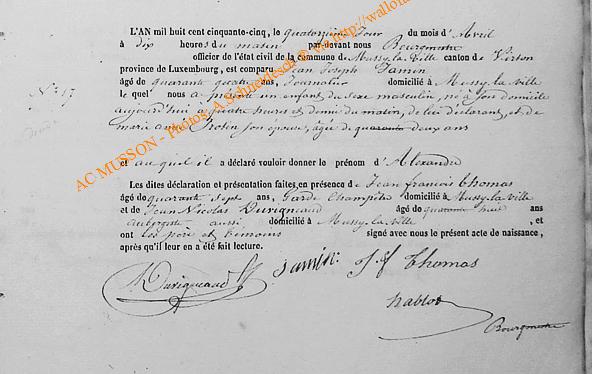 L'AN mil huit cent cinquante-cinq, le quatorzième jour du mois d'Avril
à dix heures du matin par devant nous Bourgmestre
officier de l'état civil de la commune de Mussy-la-Ville canton de Virton
province de Luxembourg, est comparu Jean Joseph Jamin
âgé de quarante quatre ans, Journalier domicilié à Mussy-la-ville
le quel nous a présenté un enfant du sexe masculin, né à son domicile
aujourd'hui à quatre heures et demie du matin, de lui déclarant, et de
marie anne son épouse, âgée de quarante deux ans
et auquel il a déclaré vouloir donner le prénom d'Alexandre
Les dites déclaration et présentation faites en présence de Jean françois thomas
âgé de quarante sept ans, Garde Champêtre domicilié à Mussy-la-ville
et de Jean Nicolas Durigneaud âgé de quarante huit ans
aubergiste aussi domicilié à Mussy-la-ville, et
ont les père et témoins signé avec nous le présent acte de naissance,
après qu'il leur en a été fait lecture.
N° 17
Durigneaud Jamin J f Thomas
Bourgmestre
AC MUSSON - Photos A.Schneidesch © via http://wallo